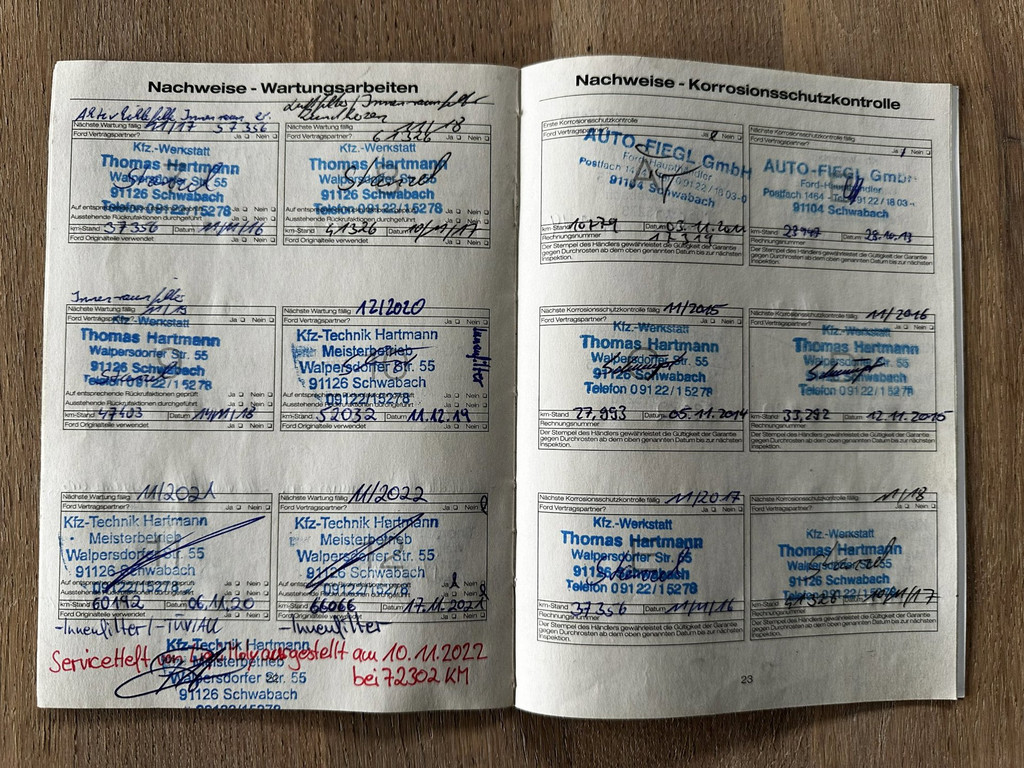 Nachweise - Wartungsarbeiten
Nächste Wartung fällig 11/17 57356
Ford Vertragspartner? Ja Nein
Kfz.-Werkstatt
Thomas Hartmann
Walpersdorfer Str. 55
91126 Schwabach
Telefon 09122/15278
Ausstehende Rückrufaktionen durchgeführt Ja Nein
km-Stand 37356 Datum 11/11/16
Ford Originalteile verwendet Ja Nein
Luftfilter/Innenraumfilter
Nächste Wartung fällig 11/18
Ford Vertragspartner? 61326 Ja Nein
Kfz.-Werkstatt
Thomas Hartmann
Walpersdorfer Str. 55
91126 Schwabach
Telefon 09122/15278
Ausstehende Rückrufaktionen durchgeführt Ja Nein
km-Stand 41326 Datum 10/11/17
Ford Originalteile verwendet Ja Nein
Innenraumfilter
Nächste Wartung fällig 11/19
Ford Vertragspartner? Ja Nein
Kfz-Werkstatt
Thomas Hartmann
Walpersdorfer Str. 55
91126 Schwabach
Telefon 09122/15278
Auf entsprechende Rückrufaktionen geprüft Ja Nein
Ausstehende Rückrufaktionen durchgeführt Ja Nein
km-Stand 47403 Datum 14/11/18
Ford Originalteile verwendet Ja Nein
12/2020
Nächste Wartung fällig
Ford Vertragspartner? Ja Nein
Kfz-Technik Hartmann
Meisterbetrieb
Walpersdorfer Str. 55
91126 Schwabach
09122/15278
Innenfilter
km-Stand 52032 Datum 11.12.19
Ford Originalteile verwendet Ja Nein
Nächste Wartung fällig 11/2021
Ford Vertragspartner? Ja Nein
Kfz-Technik Hartmann
Meisterbetrieb
Walpersdorfer Str. 55
91126 Schwabach
09122/15278
km-Stand 60192 Datum 06.11.20
Ford Originalteile verwendet Ja Nein
-Innenfilter / -TÜV/AU
Nächste Wartung fällig 11/2022
Ford Vertragspartner? Ja Nein
Kfz-Technik Hartmann
Meisterbetrieb
Walpersdorfer Str. 55
91126 Schwabach
09122/15278
km-Stand 66066 Datum 17.11.2021
Ford Originalteile verwendet Ja Nein
-Innenfilter
Kfz-Technik Hartmann
Meisterbetrieb
Walpersdorfer Str. 55
91126 Schwabach
09122/15278
Serviceheft ausgestellt am 10.11.2022
bei 72302 KM
Nachweise - Korrosionsschutzkontrolle
Erste Korrosionsschutzkontrolle
Ford Vertragspartner? Ja Nein
AUTO-FIEGL GmbH
Ford-Haupthändler
Postfach 1464 09122/18 03-0
91104 Schwabach
km-Stand 10779 Datum 03.11.2011
Rechnungsnummer
Der Stempel des Händlers gewährleistet die Gültigkeit der Garantie
gegen Durchrosten ab dem oben genannten Datum bis zur nächsten
Inspektion.
Nächste Korrosionsschutzkontrolle fällig
Ford Vertragspartner? Ja Nein
AUTO-FIEGL GmbH
Ford-Haupthändler
Postfach 1464 09122/18 03-0
91104 Schwabach
km-Stand Datum 28.10.13
Rechnungsnummer
Der Stempel des Händlers gewährleistet die Gültigkeit der Garantie
gegen Durchrosten ab dem oben genannten Datum bis zur nächsten
Inspektion.
Nächste Korrosionsschutzkontrolle fällig 11/2015
Ford Vertragspartner? Ja Nein
Kfz.-Werkstatt
Thomas Hartmann
Walpersdorfer Str. 55
91126 Schwabach
Telefon 09122/15278
km-Stand 27.993 Datum 05.11.2014
Rechnungsnummer
Der Stempel des Händlers gewährleistet die Gültigkeit der Garantie
gegen Durchrosten ab dem oben genannten Datum bis zur nächsten
Inspektion.
Nächste Korrosionsschutzkontrolle fällig 11/2016
Ford Vertragspartner? Ja Nein
Kfz.-Werkstatt
Thomas Hartmann
Walpersdorfer Str. 55
91126 Schwabach
Telefon 09122/15278
km-Stand 33.292 Datum 12.11.2015
Rechnungsnummer
Der Stempel des Händlers gewährleistet die Gültigkeit der Garantie
gegen Durchrosten ab dem oben genannten Datum bis zur nächsten
Inspektion.
Nächste Korrosionsschutzkontrolle fällig 11/2017
Ford Vertragspartner? Ja Nein
Kfz.-Werkstatt
Thomas Hartmann
Walpersdorfer Str. 55
91126 Schwabach
Telefon 09122/15278
km-Stand 37356 Datum 11/11/16
Rechnungsnummer
Der Stempel des Händlers gewährleistet die Gültigkeit der Garantie
gegen Durchrosten ab dem oben genannten Datum bis zur nächsten
Inspektion.
Nächste Korrosionsschutzkontrolle fällig 11/18
Ford Vertragspartner? Ja Nein
Kfz.-Werkstatt
Thomas Hartmann
Walpersdorfer Str. 55
91126 Schwabach
Telefon 09122/15278
km-Stand 41326 Datum 10/11/17
Rechnungsnummer
Der Stempel des Händlers gewährleistet die Gültigkeit der Garantie
gegen Durchrosten ab dem oben genannten Datum bis zur nächsten
Inspektion.
23